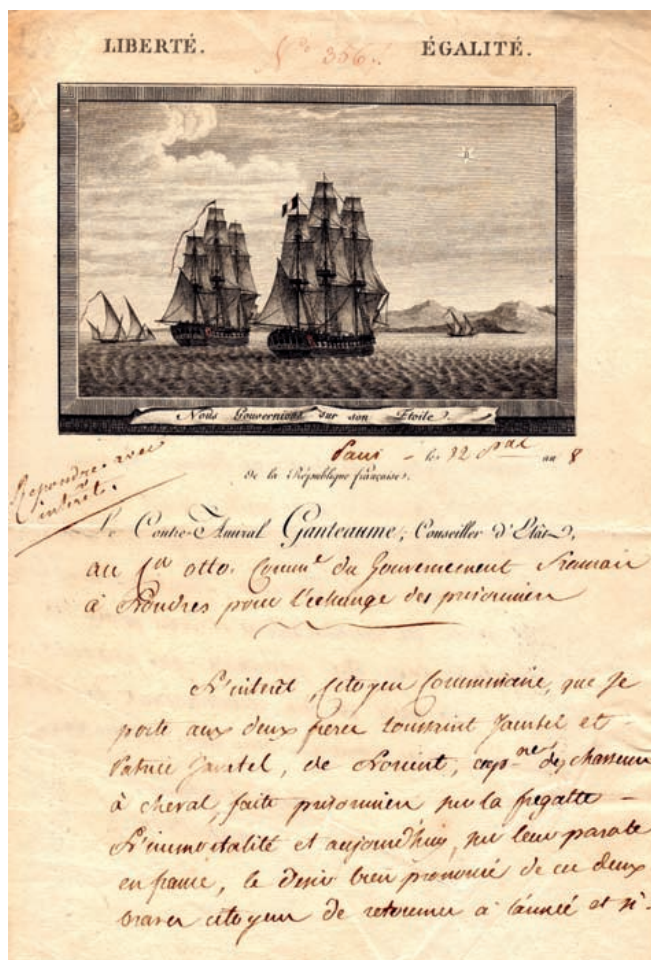 LIBERTÉ. N.º 356. ÉGALITÉ.
Nous Gouvernions sur son Étoile.
Paris - le 12 P.al an 8
de la République française.
Repondre avec
interêt.
Le Contre-Amiral Ganteaume, Conseiller d'État,
au C.en otto. Comm.re du Gouvernement francais
à Londres pour l'echange des prisonnier
L'interêt, Citoyen Commissaire, que je
porte aux deux freres toussaint et
Patrice, de Lorient, cap.nes des chasseurs
à cheval, faits prisonniers sur la fregatte
L'immortalité et aujourdhuy, sur leur parole
en france, le desir bien prononcé de ces deux
braves citoyens de retourner a l'armée et